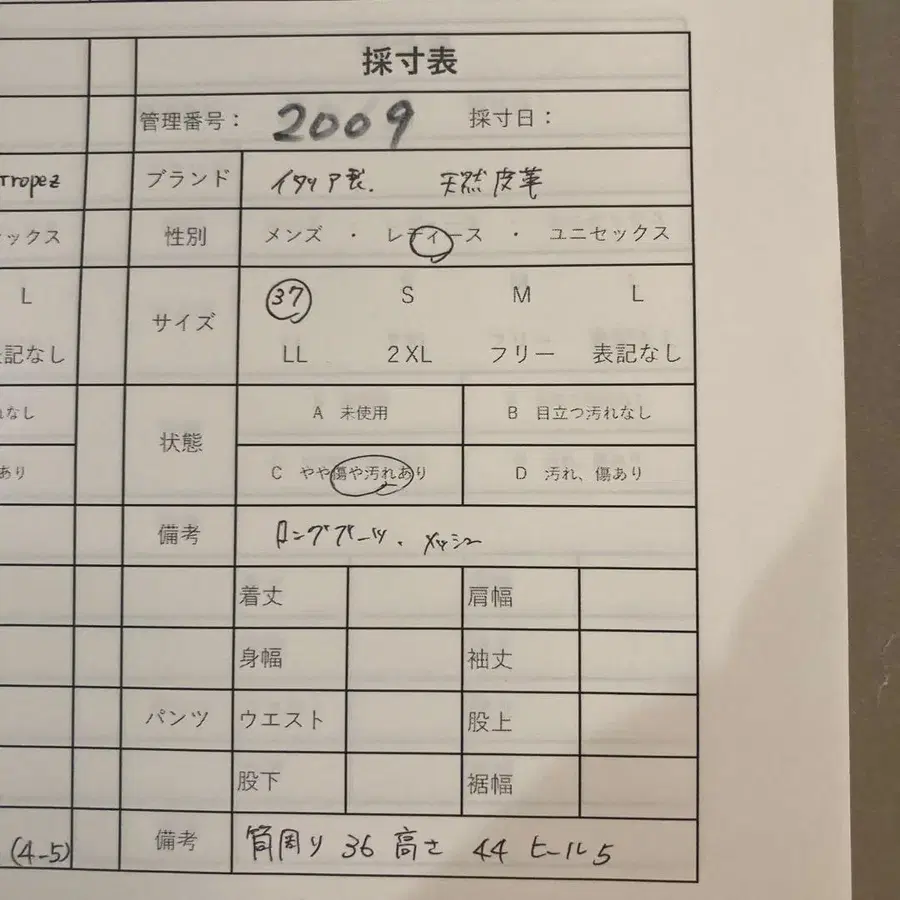 採寸表
管理番号： 2009 採寸日：
Tropez
ブランド イタリア製. 天然皮革
ックス
性別 メンズ ・ レディース ・ ユニセックス
L
サイズ 37 S M L
記なし
LL 2XL フリー 表記なし
なし
状態 A 未使用 B 目立つ汚れなし
あり
C やや傷や汚れあり D 汚れ、傷あり
備考 ロングブーツ、メッシュ
着丈 肩幅
身幅 袖丈
パンツ ウエスト 股上
股下 裾幅
(4-5)
備考 筒周り 36 高さ 44 ヒール5